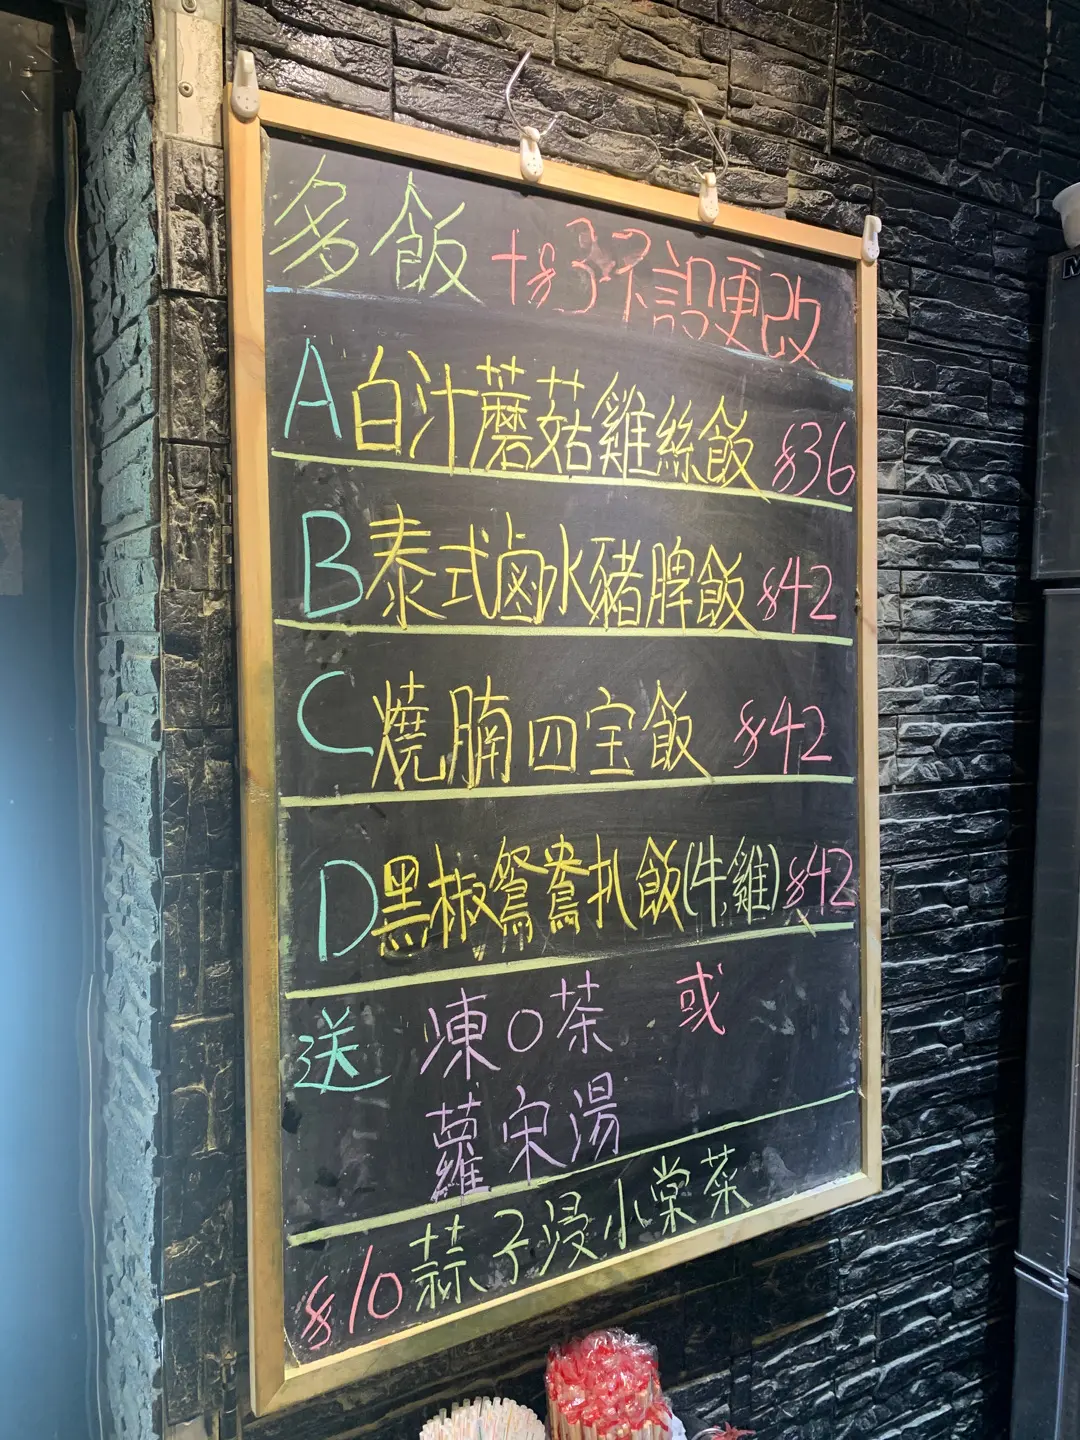 多飯 +$3不設更改
A 白汁蘑菇雞絲飯 $36
B 泰式鹵水豬脾飯 $42
C 燒腩四宝飯 $42
D 黑椒鴛鴦扒飯(牛,雞) $42
送 凍O茶 或
蘿宋湯
$10 蒜子浸小棠菜